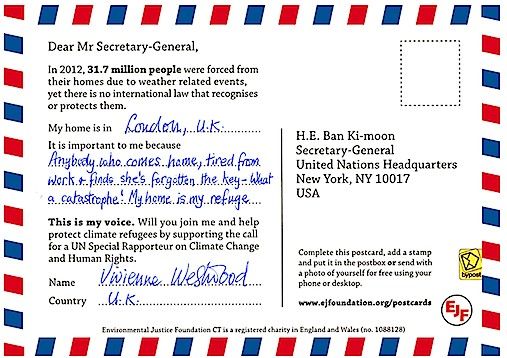 Dear Mr Secretary-General,
In 2012, 31.7 million people were forced from
their homes due to weather related events,
yet there is no international law that recognises
or protects them.
My home is in London, U.K.
It is important to me because
Anybody who comes home, tired from
work & finds she's forgotten the key - What
a catastrophe! My home is my refuge
This is my voice. Will you join me and help
protect climate refugees by supporting the call
for a UN Special Rapporteur on Climate Change
and Human Rights.
Name Vivienne Westwood
Country U.K.
H.E. Ban Ki-moon
Secretary-General
United Nations Headquarters
New York, NY 10017
USA
Complete this postcard, add a stamp
and put it in the postbox or send with
a photo of yourself for free using your
phone or desktop.
bypost
www.ejfoundation.org/postcards
EJF
Environmental Justice Foundation CT is a registered charity in England and Wales (no. 1088128)